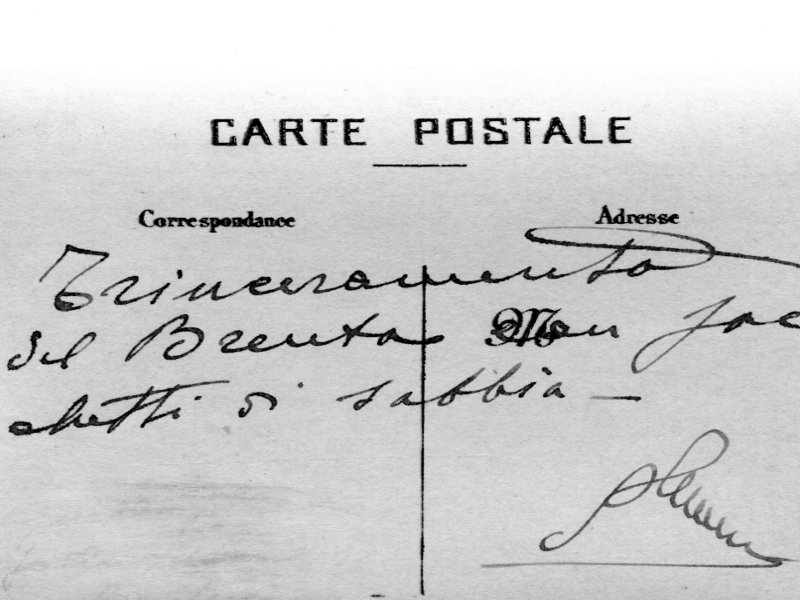 CARTE POSTALE
Correspondance Adresse
Trinceramento
del Brenta con sac
chetti di sabbia —